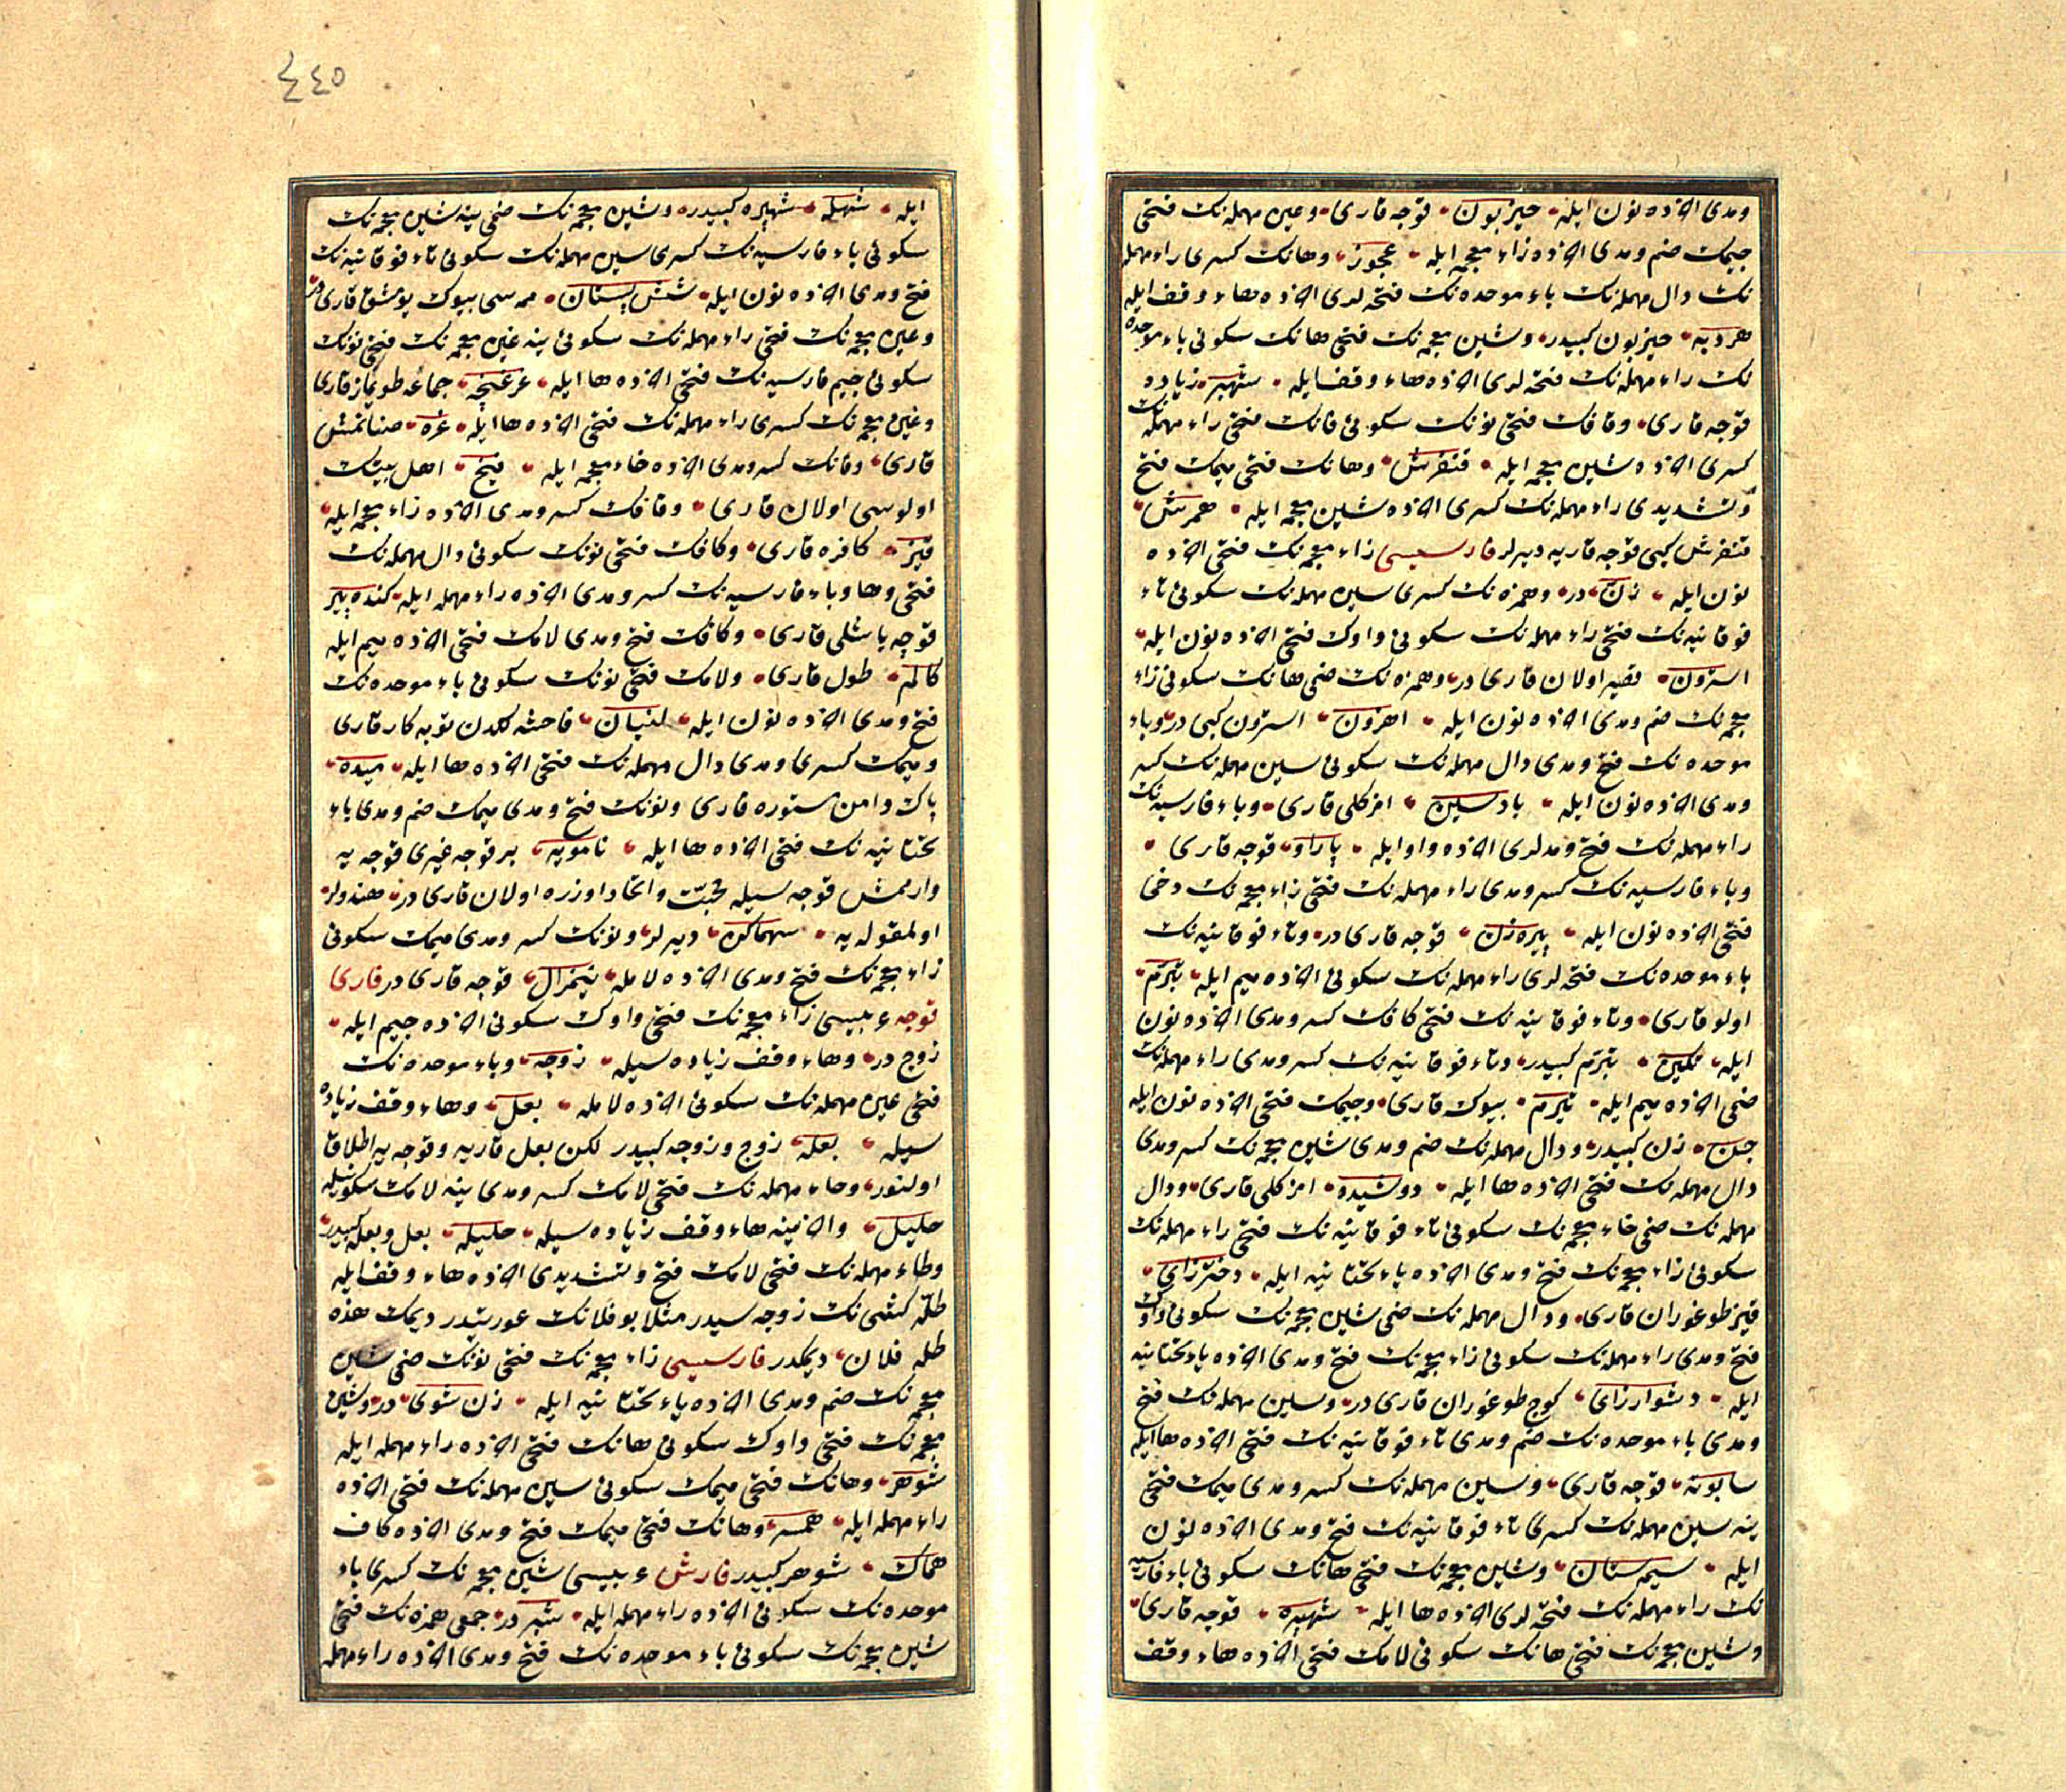 ومدی اخرنده نون ایله حیزبون قوجه قاری وعین مهمله نك فتحی
جیمك ضم ومدی اخرنده زاء معجمه ایله عجوز وهانك كسری راء مهمله
نك دال مهمله نك باء موحده نك فتحه لری اخرنده هاء وقف ایله
هردبه حیزبون كبیدر وشین معجمه نك فتحی هانك سكونی باء موحده
نك راء مهمله نك فتحه لری اخرنده هاء وقف ایله شهبره زیاده
قوجه قاری وقافك فتحی نونك سكونی فانك فتحی راء مهمله نك
كسری اخرنده شین معجمه ایله قنفرش وهانك فتحی میمك فتح
وتشدیدی راء مهمله نك كسری اخرنده شین معجمه ایله همرش
قنفرش كبی قوجه قاریه دیرلر فارسیسی زاء معجمه نك فتحی اخرنده
نون ایله زن در وهمزه نك كسری سین مهمله نك سكونی تاء
فوقانیه نك فتحی راء مهمله نك سكونی واوك فتحی اخرنده نون ایله
استرون قصیر اولان قاری در وهمزه نك ضمی هانك سكونی زاء
معجمه نك ضم ومدی اخرنده نون ایله اهزون استرون كبی در وباء
موحده نك فتح ومدی دال مهمله نك سكونی سین مهمله نك كسر
ومدی اخرنده نون ایله بادسین امزكلی قاری وباء فارسیه نك
راء مهمله نك فتح ومدلری اخرنده واو ایله پاراو قوجه قاری
وباء فارسیه نك كسر ومدی راء مهمله نك فتحی زاء معجمه نك دخی
فتحی اخرنده نون ایله پیره زن قوجه قاری در وتاء فوقانیه نك
باء موحده نك فتحه لری راء مهمله نك سكونی اخرنده میم ایله تبرم
اولو قاری وتاء فوقانیه نك فتحی كافك كسر ومدی اخرنده نون
ایله تكین تبرم كبیدر وتاء فوقانیه نك كسر ومدی راء مهمله نك
ضمی اخرنده میم ایله تیرم بیوك قاری وجیمك فتحی اخرنده نون ایله
جن زن كبیدر ودال مهمله نك ضم ومدی شین معجمه نك كسر ومدی
دال مهمله نك فتحی اخرنده ها ایله دوشیده امزكلی قاری ودال
مهمله نك ضمی خاء معجمه نك سكونی تاء فوقانیه نك فتحی راء مهمله نك
سكونی زاء معجمه نك فتح ومدی اخرنده یاء تحتانیه ایله دخترزای
قیز طوغوران قاری ودال مهمله نك ضمی شین معجمه نك سكونی واوك
فتح ومدی راء مهمله نك سكونی زاء معجمه نك فتح ومدی اخرنده یاء تحتانیه
ایله دشوارزای كوج طوغوران قاری در وسین مهمله نك فتح
ومدی باء موحده نك ضم ومدی تاء فوقانیه نك فتحی اخرنده ها ایله
سابوته قوجه قاری وسین مهمله نك كسر ومدی میمك فتحی
ینه سین مهمله نك كسری تاء فوقانیه نك فتح ومدی اخرنده نون
ایله سیمستان وشین معجمه نك فتحی هانك سكونی باء فارسیه
نك راء مهمله نك فتحه لری اخرنده ها ایله شهپره قوجه قاری
وشین معجمه نك فتحی هانك سكونی لامك فتحی اخرنده هاء وقف
٤٤٥
ایله شهله شهپره كبیدر وشین معجمه نك ضمی ینه شین معجمه نك
سكونی باء فارسیه نك كسری سین مهمله نك سكونی تاء فوقانیه نك
فتح ومدی اخرنده نون ایله شش پستان ممه سی بیوك یومشق قاری در
وعین معجمه نك فتحی راء مهمله نك سكونی ینه غین معجمه نك فتحی نونك
سكونی جیم فارسیه نك فتحی اخرنده ها ایله غرغنچه جماعه طویماز قاری
وغین معجمه نك كسری راء مهمله نك فتحی اخرنده ها ایله غره صنانمش
قاری وفانك كسر ومدی اخرنده خاء معجمه ایله فیخ اهل بیتك
اولوسی اولان قاری وقافك كسر ومدی اخرنده زاء معجمه ایله
قیز كافره قاری وكافك فتحی نونك سكونی دال مهمله نك
فتحی وها وباء فارسیه نك كسر ومدی اخرنده راء مهمله ایله كنده پیر
قوجه یاشلی قاری وكافك فتح ومدی لامك فتحی اخرنده میم ایله
كالم طول قاری ولامك فتحی نونك سكونی باء موحده نك
فتح ومدی اخرنده نون ایله لنبان فاحشه لكدن توبه كار قاری
ومیمك كسری ومدی دال مهمله نك فتحی اخرنده ها ایله میده
پاك دامن مستوره قاری ونونك فتح ومدی میمك ضم ومدی یاء
تحتانیه نك فتحی اخرنده ها ایله نامویه بر قوجه غیری قوجه یه
وارممش قوجه سیله محبت واتحاد اوزره اولان قاری در هندولر
اولمقوله یه سهماكن دیرلر ونونك كسر ومدی میمك سكونی
زاء معجمه نك فتح ومدی اخرنده لامله نیمزال قوجه قاری در قاری
قوجه عربیسی زاء معجمه نك فتحی واوك سكونی اخرنده جیم ایله
زوج در وهاء وقف زیاده سیله زوجه وباء موحده نك
فتحی عین مهمله نك سكونی اخرنده لامله بعل وهاء وقف زیاده
سیله بعله زوج وزوجه كبیدر لكن بعل قاریه وقوجه یه اطلاق
اولنور وحاء مهمله نك فتحی لامك كسر ومدی ینه لامك سكونیله
حلیل واخرینه هاء وقف زیاده سیله حلیله بعل وبعله كبیدر
وطاء مهمله نك فتحی لامك فتح وتشدیدی اخرنده هاء وقف ایله
طله كشی نك زوجه سیدر مثلا بو فلانك عورتیدر دیمك هذه
طله فلان دیمكدر فارسیسی زاء معجمه نك فتحی نونك ضمی شین
معجمه نك ضم ومدی اخرنده یاء تحتانیه ایله زن شوی در وشین
معجمه نك فتحی واوك سكونی هانك فتحی اخرنده راء مهمله ایله
شوهر وهانك فتحی میمك سكونی سین مهمله نك فتحی اخرنده
راء مهمله ایله همسر وهانك فتحی میمك فتح ومدی اخرنده كاف
هماك شوهر كبیدر قارش عربیسی شین معجمه نك كسری باء
موحده نك سكونی اخرنده راء مهمله ایله شبر در جمعی همزه نك فتحی
شین معجمه نك سكونی باء موحده نك فتح ومدی اخرنده راء مهمله